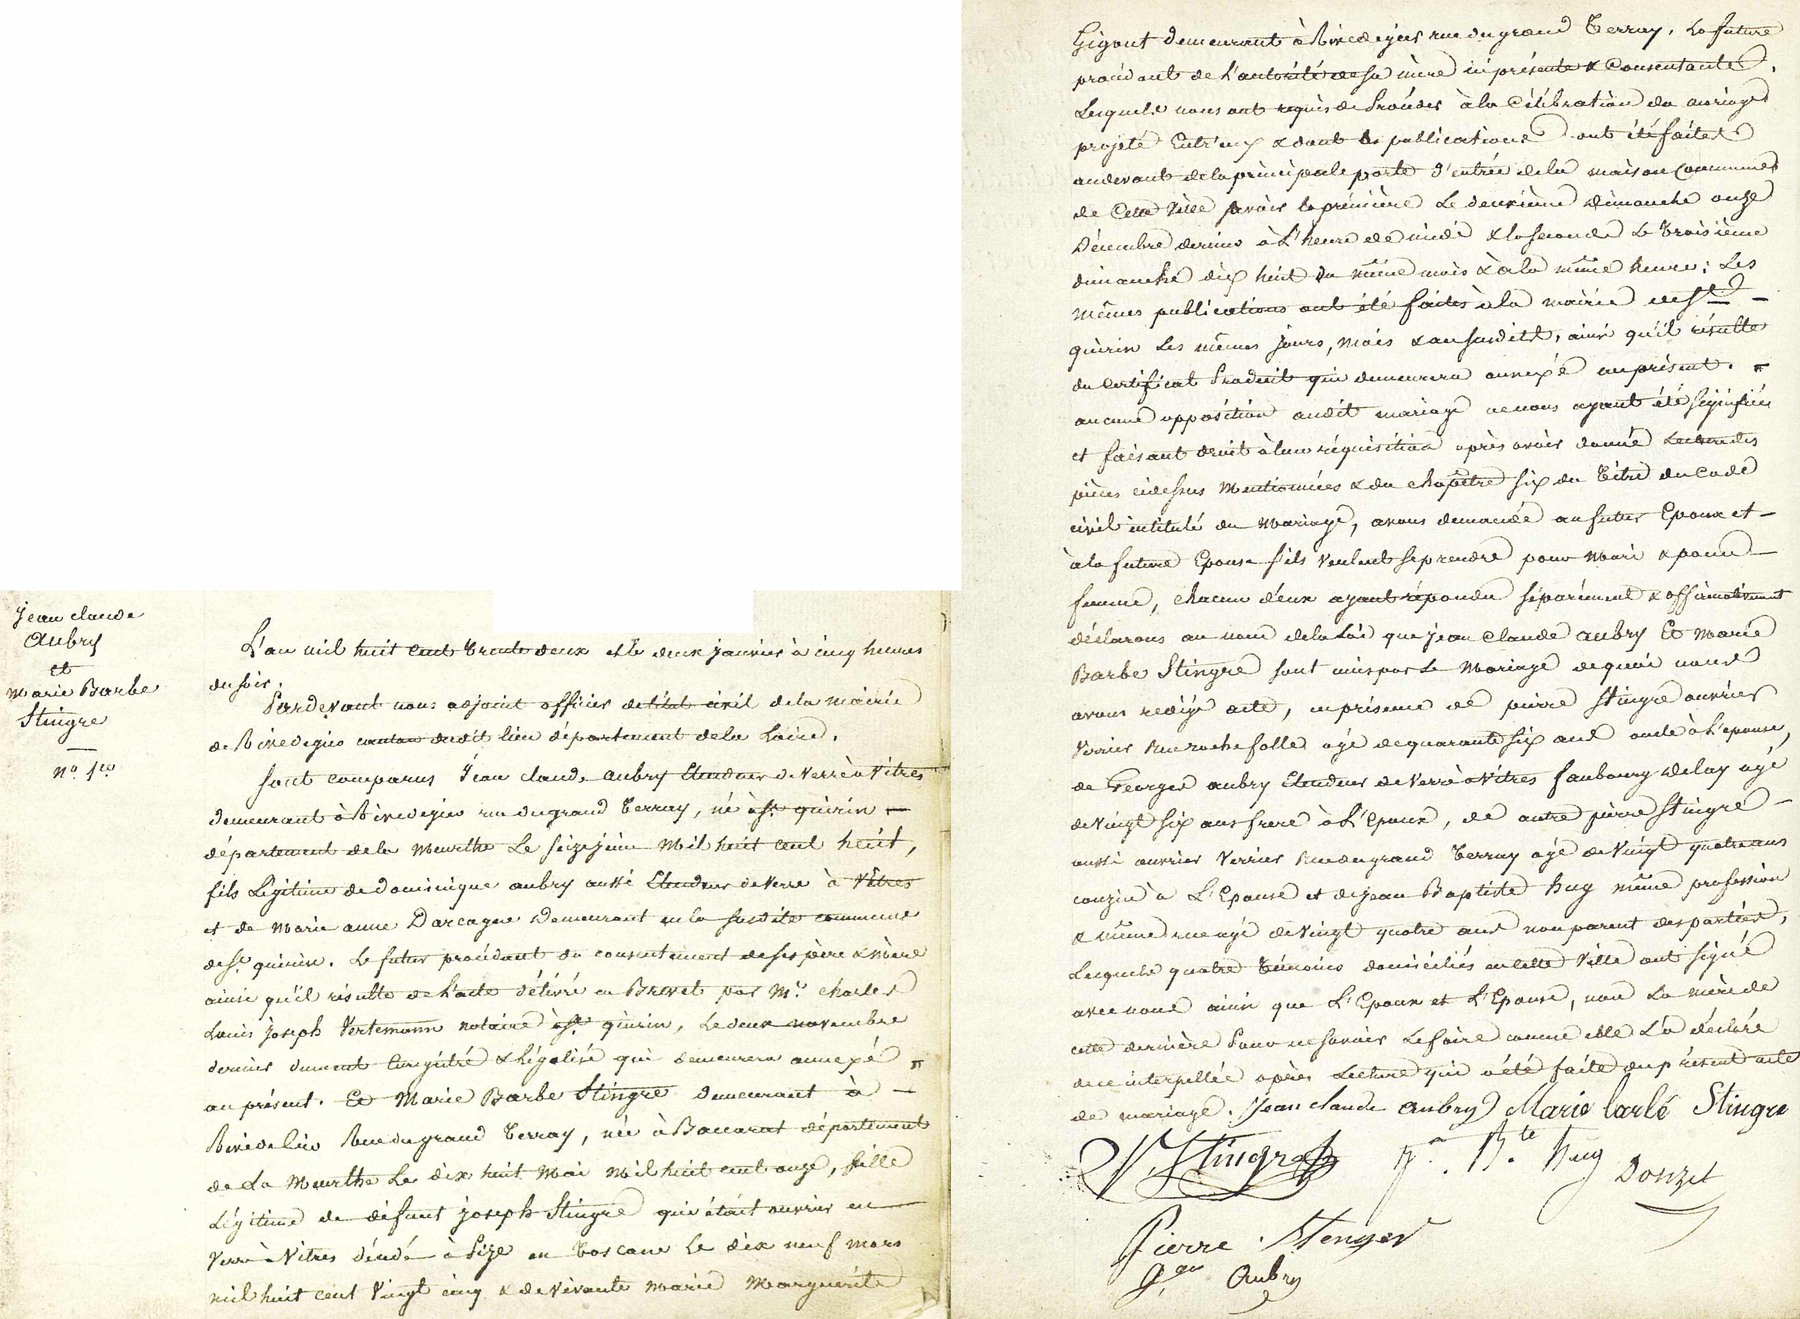 Jean claude
Aubry
et
Marie Barbe
Stingre
—
n.º 1.er
L'an mil huit cent trente deux et le deux janvier à cinq heures
du soir.
Pardevant nous adjoint officier de l'état civil de la mairie
de Rivedegier canton dudit lieu département de la Loire.
Sont comparus Jean claude aubry Etendeur de verre à Vitres
demeurant à Rivedegier rue du grand Terray, né à St. quirin —
département de la Meurthe Le seize juin Mil huit cent huit,
fils Légitime de dominique aubry aussi Etendeur de verre à Vitres
et de Marie anne Darcagne demeurant en la susdite commune
de St. quirin. Le futur procédant du consentement de ses père & mère
ainsi qu'il résulte de l'acte délivré en Brevet par M.e charles
Louis joseph Vertemann notaire à St. quirin, Le deux novembre
dernier dument Enrégistré & Légalisé qui demeurera annexé
au présent. Et Marie Barbe Stingre demeurant à —
Rivedegier Rue du grand Terray, née à Baccarat département
de La Meurthe Le dix huit Mai Mil huit cent onze, fille
Légitime de défunt joseph Stingre qui était ouvrier en
Verre à Vitres décédé à Pize en Toscane Le dix neuf mars
mil huit cent vingt cinq & de vivante Marie Marguerite
Gigout demeurant à Rivedegier rue du grand Terray. La future
procédant de l'autorité de sa mère ici présente & Consentante.
Lesquels nous ont requis de Procéder à la Célébration du mariage
projeté Entr'eux & dont les publications ont été faites
au devant de la principale porte d'entrée de la maison Commune
de Cette Ville savoir la première Le deuxième dimanche onze
Décembre dernier à L'heure de midi & la seconde Le troisième
dimanche dix huit du même mois & à la même heure; Les
mêmes publications ont été faites à la mairie de St. —
quirin Les mêmes jours, Mois & an susdits, ainsi qu'il résulte
du certificat Produit qui demeurera annexé au présent.
aucune opposition audit mariage ne nous ayant été signifiée
et faisant droit à leur réquisition après avoir donné Lecture des
pièces cidessus Mentionnées & du chapitre six du Titre du Code
civil intitulé du Mariage, avons demandé au futur Epoux et —
à la future Epouse s'ils veulent se prendre pour Mari & pour —
femme, chacun d'eux ayant répondu séparément & affirmativement
déclarons au nom de la Loi que jean claude aubry Et Marie
Barbe Stingre sont unis par Le Mariage de quoi nous
avons redigé acte, en présence de pierre Stingre ouvrier
Verrier Rue rochefolle agé de quarante six ans oncle à L'epouse,
de Georges aubry Etendeur de Verre à Vitres faubourg delay agé
de vingt six ans frere à L'Epoux, de autre pierre Stingre —
aussi ouvrier Verrier Rue du grand Terray agé de vingt quatre ans
couzin à L'Epouse et de jean Baptiste hug même profession
& même rue agé de vingt quatre ans non parent des parties,
Lesquels quatre témoins domiciliés en cette Ville ont signé
avec nous ainsi que L'Epoux et L'Epouse, non La mère de
cette dernière Pour ne savoir Le faire comme elle L'a déclaré
de ce interpellée après Lecture qui a été faite du présent acte
de mariage. Jean claude aubry Marie barbe Stingre
P. Stingre J.n B.te hug Donzel
Pierre Stenger
G.ges Aubry